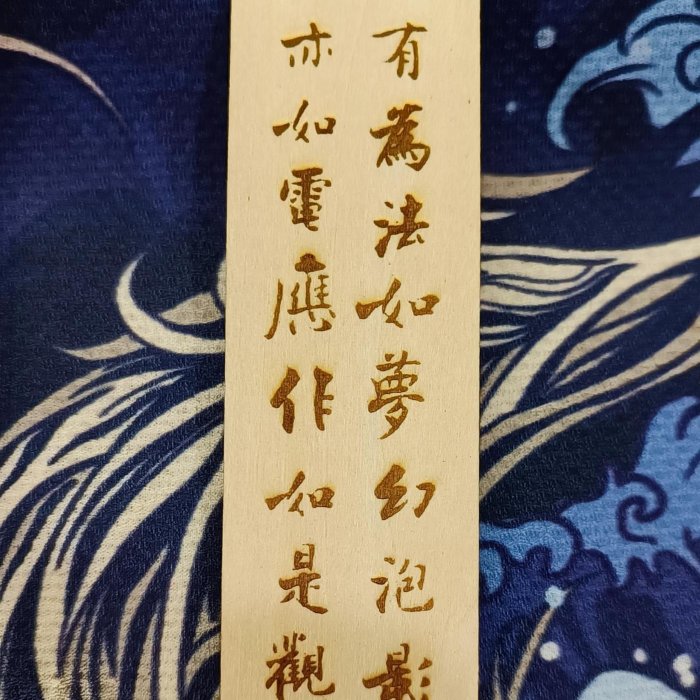 有爲法如夢幻泡影
亦如電應作如是觀